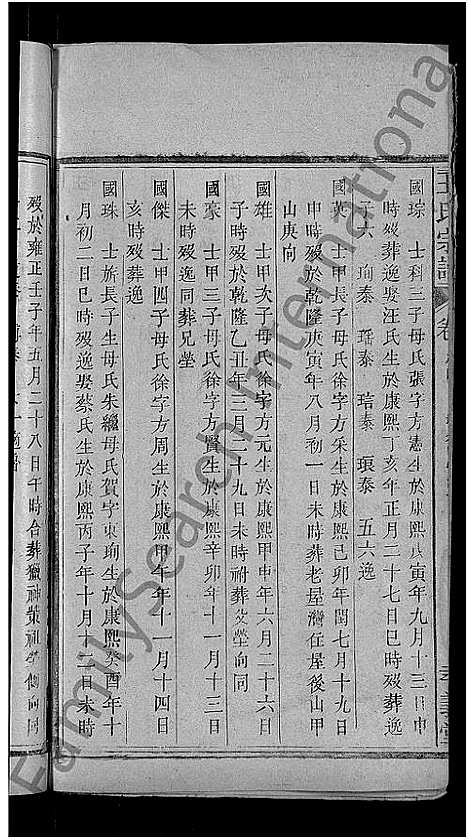 王氏宗譜
卷
國琮 士科三子母氏張字方憲生於康熙庚寅年九月十三日申
時歿葬逸娶汪氏生於康熙丁亥年正月二十七日巳時歿葬逸
子六 珣泰 瑤泰 琣泰 琅泰 五六逸
國英 士甲長子母氏徐字方采生於康熙己卯年閏七月十九日
申時歿於乾隆庚寅年八月初一日未時葬老屋灣住屋後山甲
山庚向
國雄 士甲次子母氏徐字方元生於康熙甲申年六月二十六日
子時歿於乾隆乙丑年三月二十九日未時祔葬父塋向同
國豪 士甲三子母氏徐字方賢生於康熙辛卯年十一月十三日
未時歿逸同葬兄塋
國傑 士甲四子母氏徐字方周生於康熙甲午年十一月十四日
亥時歿葬逸
國珠 士旂長子生母氏朱繼母氏賀字東珣生於康熙癸酉年十
月初二日巳時歿逸娶蔡氏生於康熙丙子年十月十六日未時
歿於雍正壬子年五月二十八日午時合葬獵神葉祖塋側向同
FamilySearch International